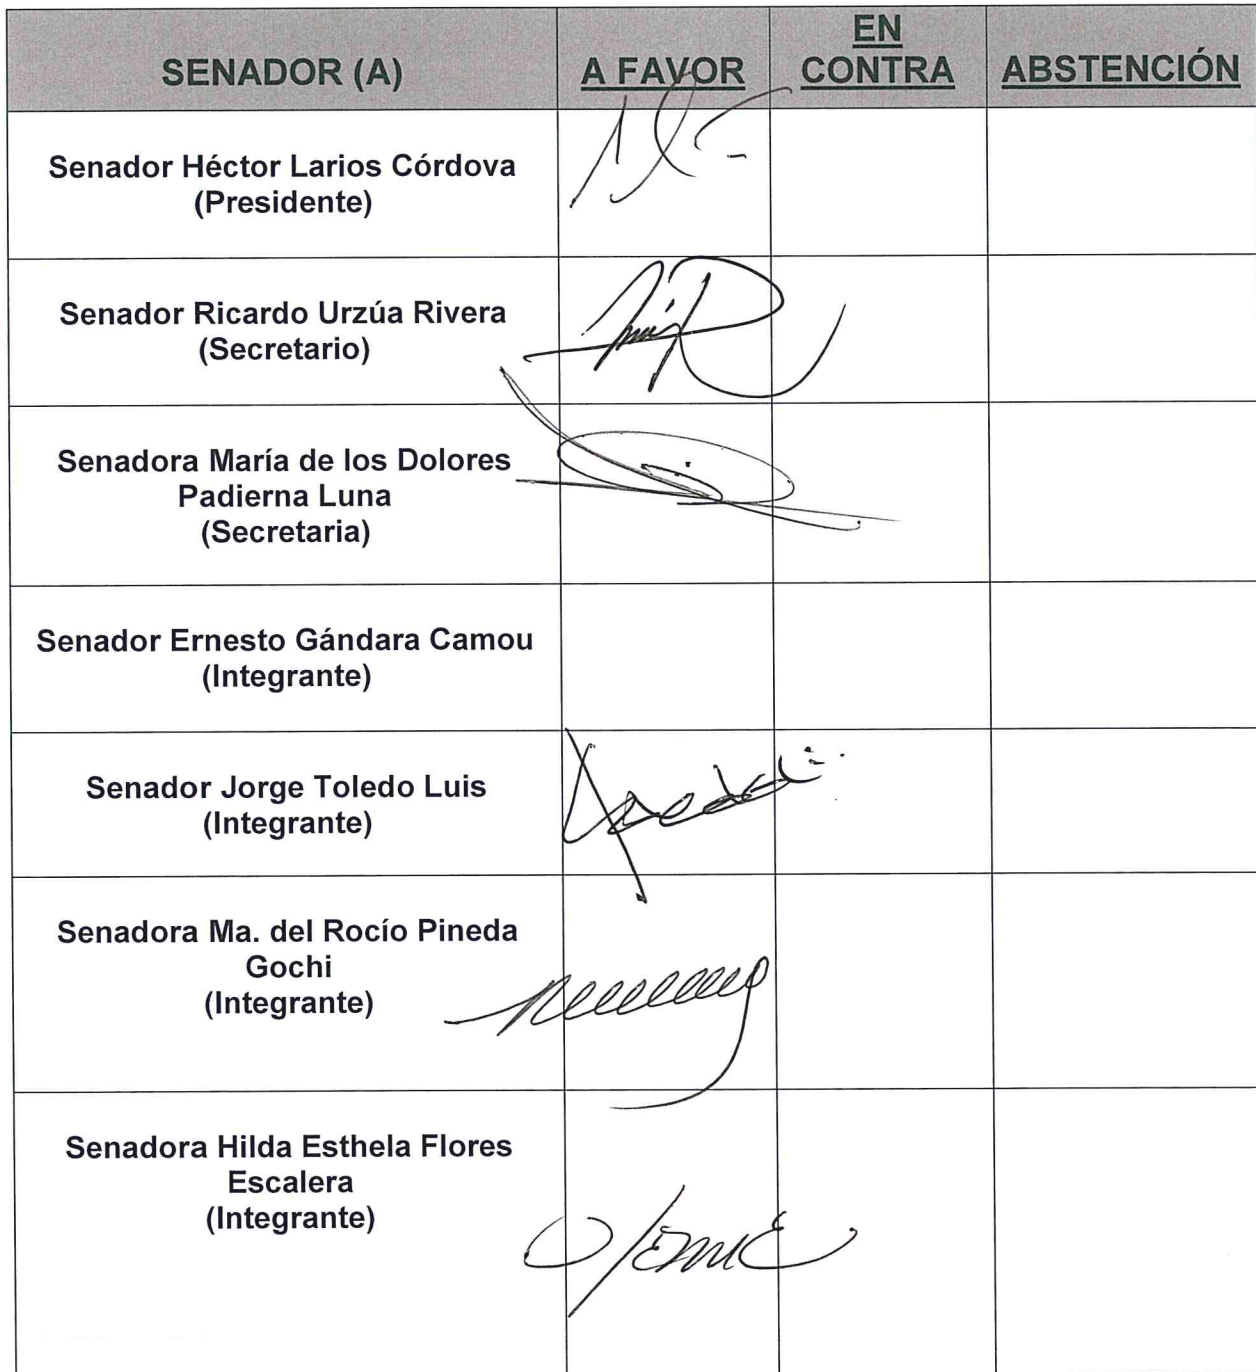 SENADOR (A)
A FAVOR
EN
CONTRA
ABSTENCIÓN
Senador Héctor Larios Córdova
(Presidente)
Senador Ricardo Urzúa Rivera
(Secretario)
Senadora María de los Dolores
Padierna Luna
(Secretaria)
Senador Ernesto Gándara Camou
(Integrante)
Senador Jorge Toledo Luis
(Integrante)
Senadora Ma. del Rocío Pineda
Gochi
(Integrante)
Senadora Hilda Esthela Flores
Escalera
(Integrante)